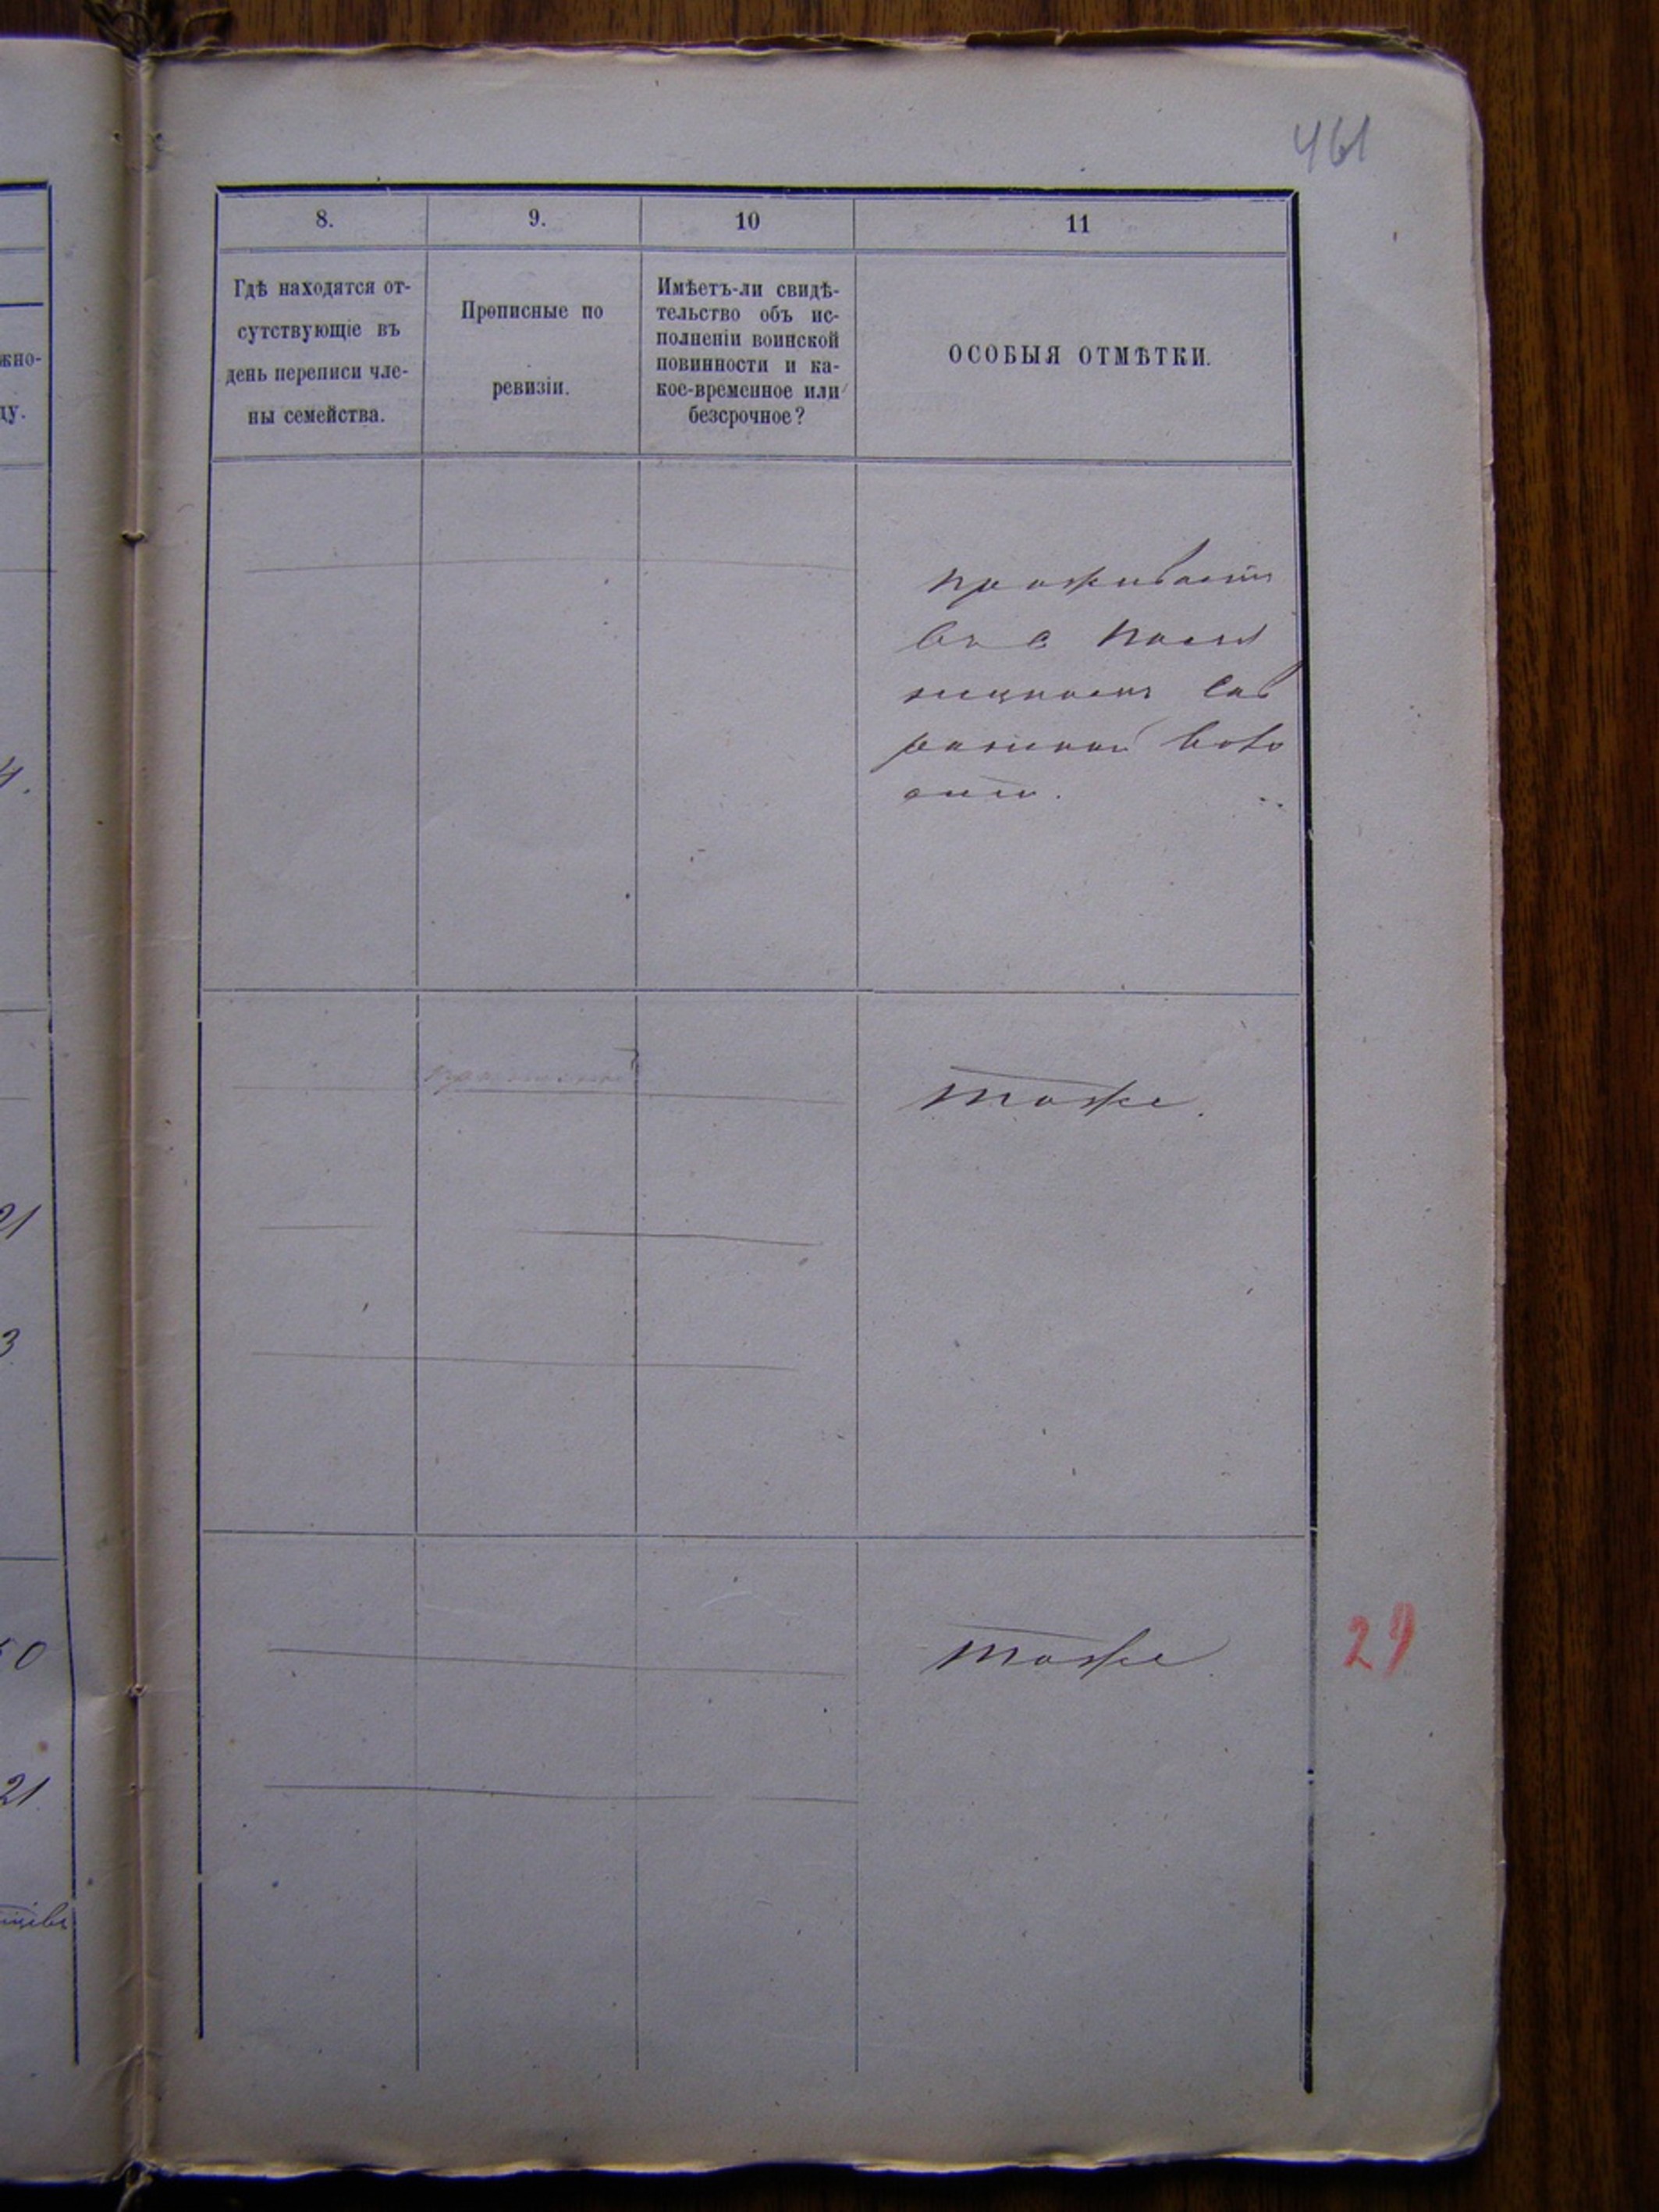 461
8.
9.
10
11
Гдѣ находятся от-
сутствующіе въ
день переписи чле-
ны семейства.
Прописные по
ревизіи.
Имѣетъ-ли свидѣ-
тельство объ ис-
полненіи воинской
повинности и ка-
кое-временное или
безсрочное?
ОСОБЫЯ ОТМѢТКИ.
жно-
ду.
проживаетъ
въ с
4.
тоже.
21
3
тоже
29
50
21